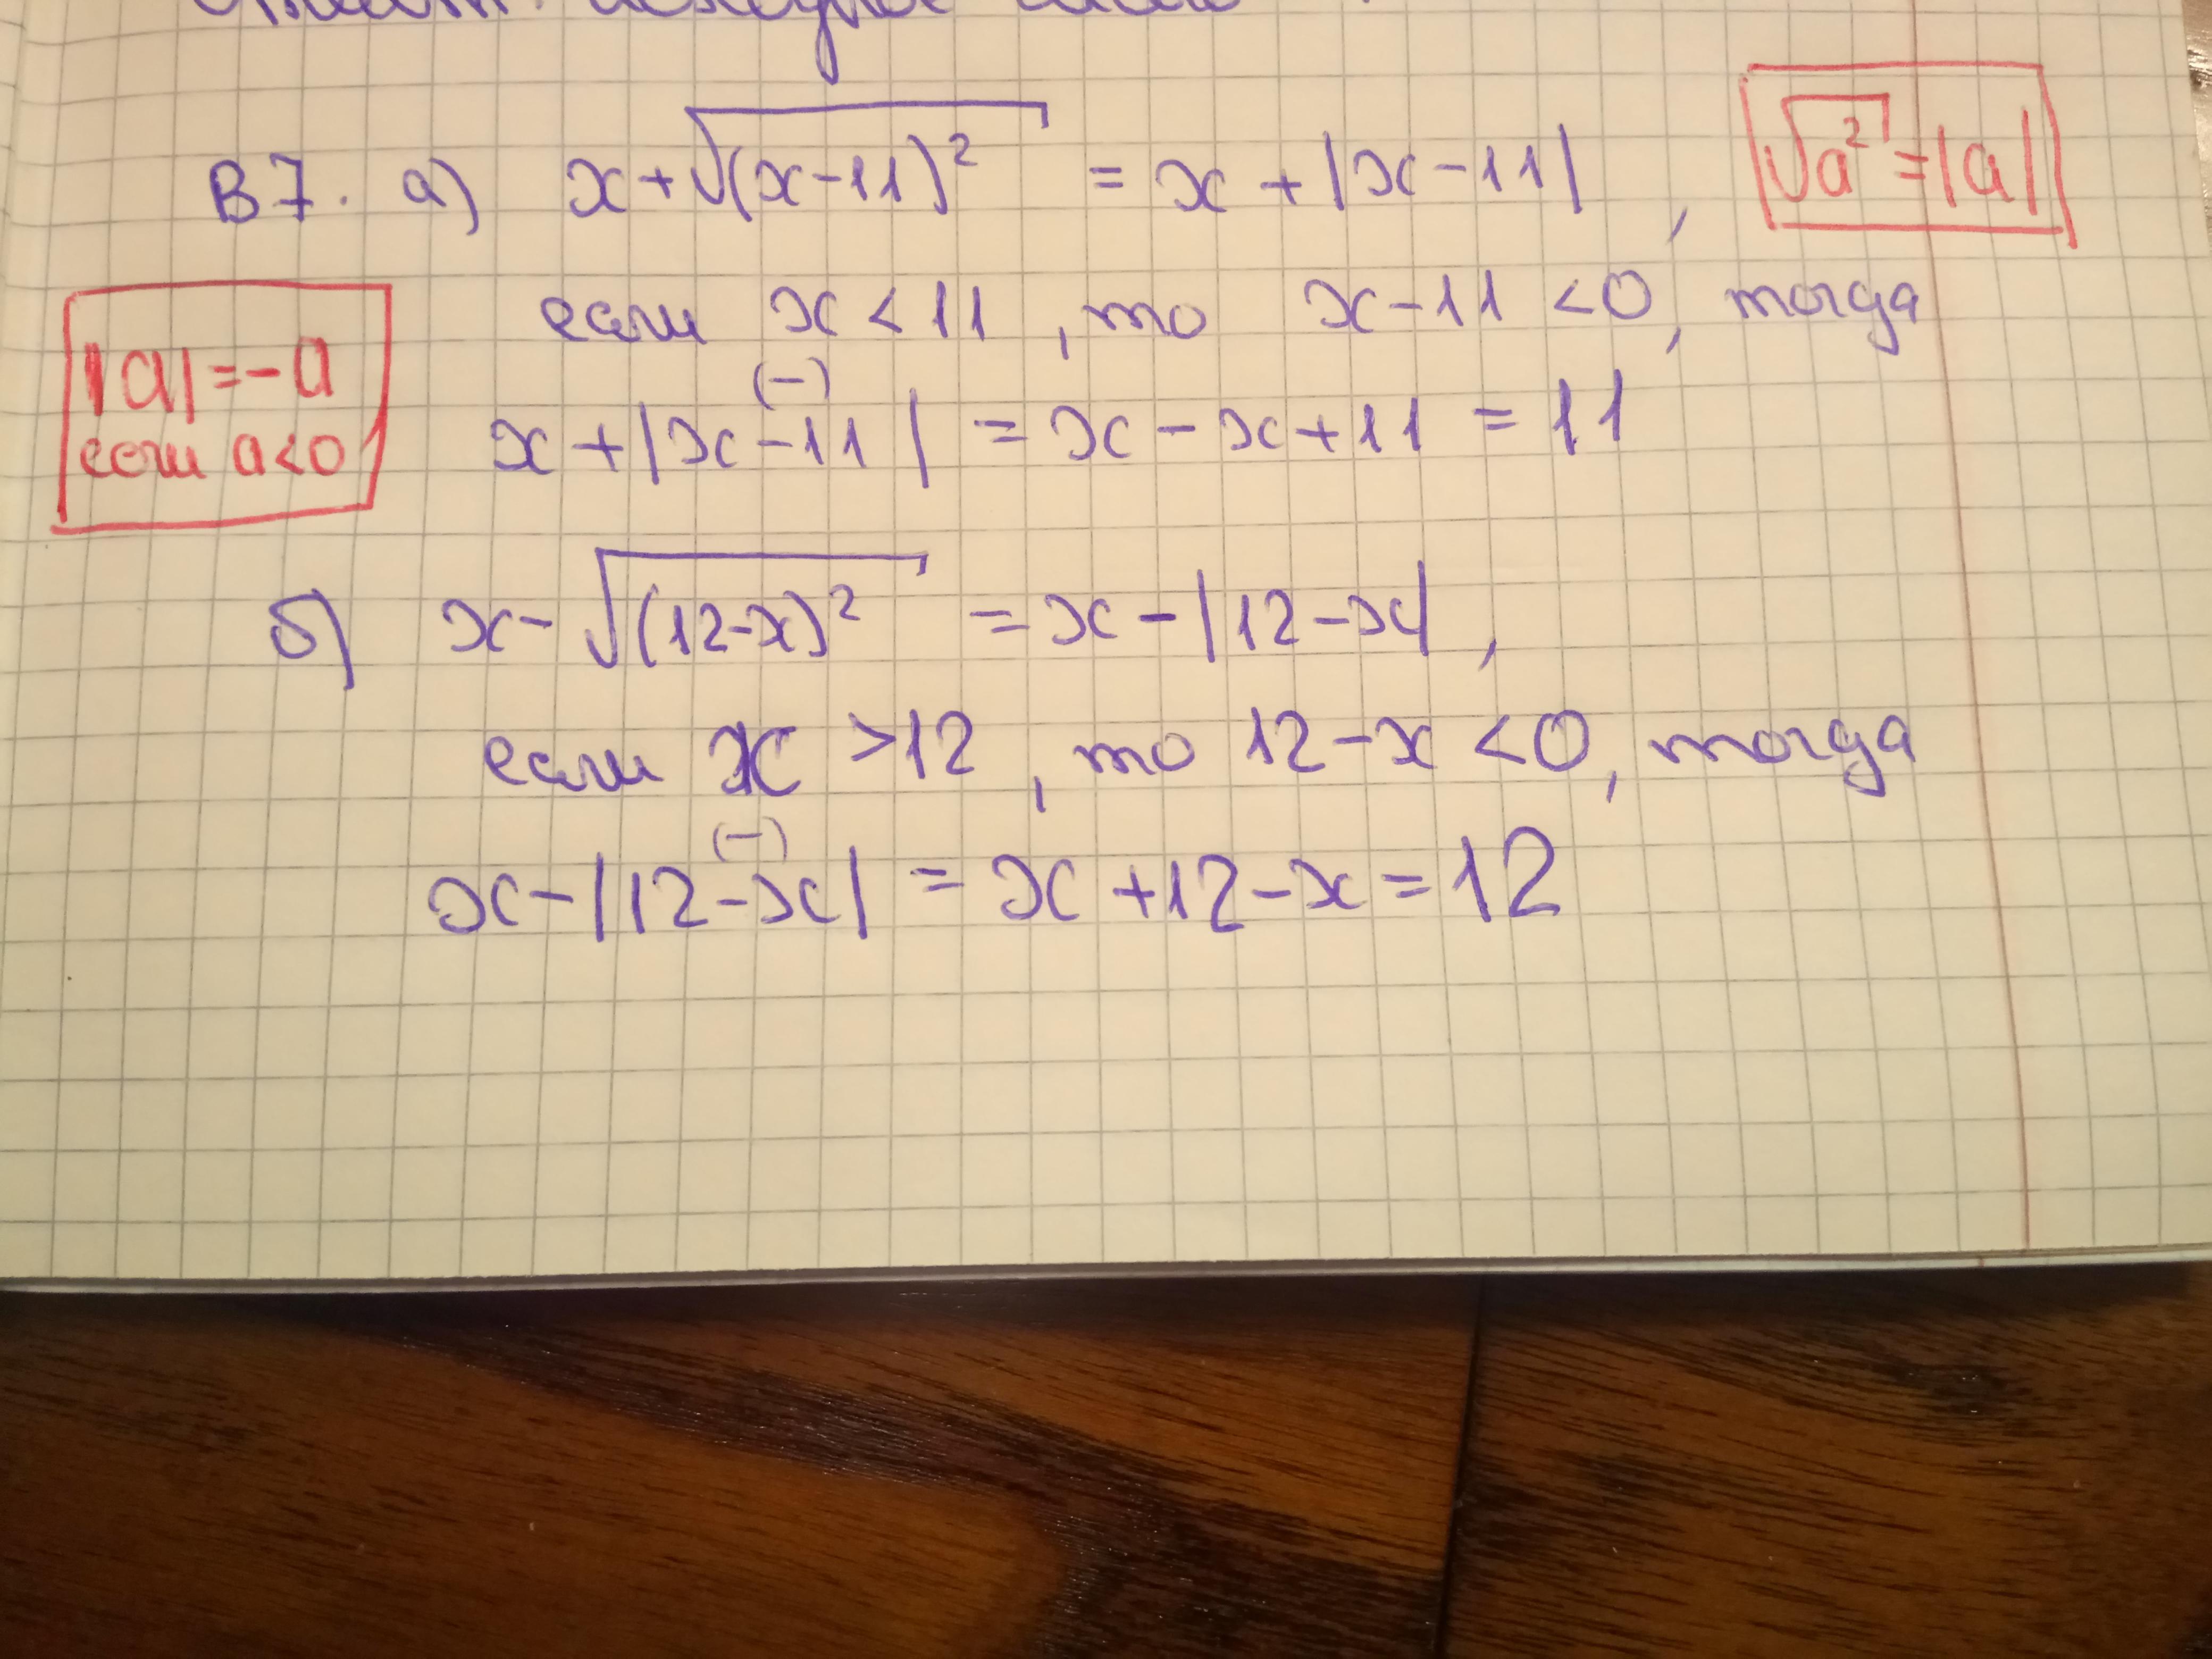 В7. а) x+√(x-11)² = x + |x-11| ,
√a² = |a|
если x < 11 , то x-11 < 0, тогда
|a| = -a
если a<0
(-)
x + |x-11| = x - x + 11 = 11
б) x - √(12-x)² = x - |12-x| ,
если x > 12 , то 12-x < 0, тогда
(-)
x - |12-x| = x + 12 - x = 12